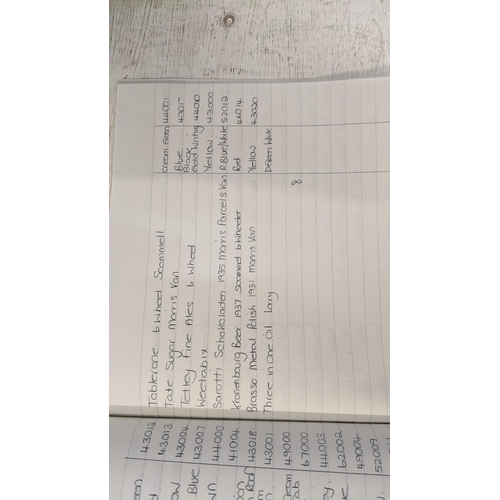 Toblerone 6 Wheel Scammell Cream Green 44001
Tate Sugar Morris Van Blue 43015
Tetley Fine Ales 6 Wheel Black Gold Writing 44010
Weetabix Yellow 43000
Sarotti Schokoladen 1935 Morris Parcels Van R Blue/White 52012
Kronenbourg Beer 1937 Scammel 6 Wheeler Red 44014
Brasso Metal Polish 1931 Morris Van Yellow 43020
Three in One Oil Lorry Green White
8
43012
43013
43004
Blue 43007
44000
41004
43018
43001
Cream 49000
67000
44003
62002
49004
52009